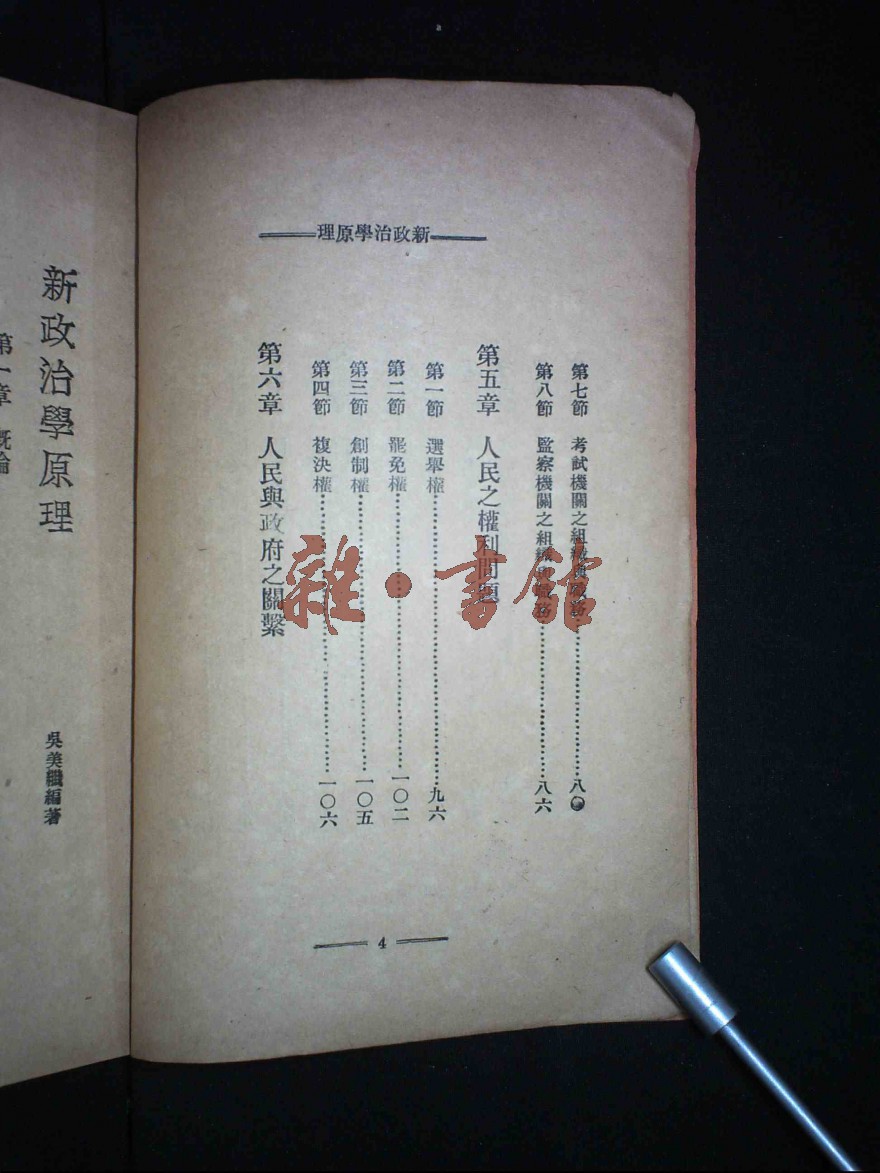 新政治學原理
第七節 考試機關之組織與職務……八〇
第八節 監察機關之組織與職務……八六
第五章 人民之權利問題
第一節 選舉權……九六
第二節 罷免權……一〇二
第三節 創制權……一〇五
第四節 複決權……一〇六
第六章 人民與政府之關繫
4
新政治學原理
吳美繼編著
第一章 概論
雜·書館